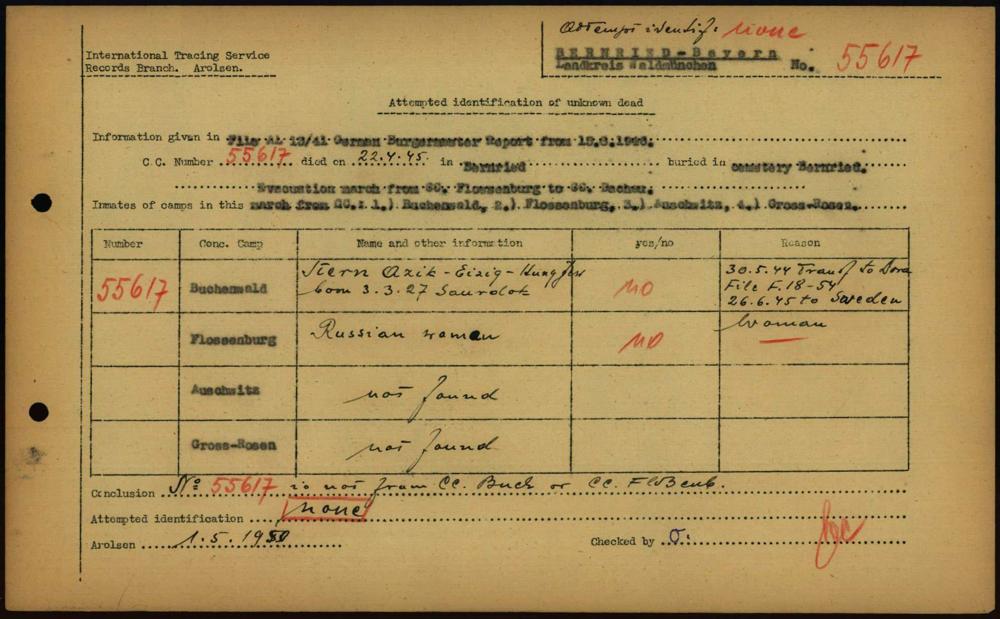 Attempt identif: none
International Tracing Service
Records Branch. Arolsen.
BERNRIED-Bayern
Landkreis Waldmünchen
No. 55617
Attempted identification of unknown dead
Information given in File AL 13/41 German Burgermaster Report from
C.C. Number 55617 died on 22.4.45. in Bernried buried in cemetery Bernried.
Evacuation march from CC. Flossenburg to CC. Dachau.
Inmates of camps in this march from CC.: 1.) Buchenwald, 2.) Flossenburg, 3.) Auschwitz, 4.) Gross-Rosen.
Number Conc. Camp Name and other information yes/no Reason
55617 Buchenwald Stern Azik - Eizig - Hung Jew born 3.3.27 no 30.5.44 Transf to Dora File F.18-54 26.6.45 to Sweden
Flossenburg Russian women no Woman
Auschwitz not found
Gross-Rosen not found
Conclusion No 55617 is not from CC. Buch or CC. Floßenb.
Attempted identification none
Arolsen 1.5.1950 Checked by